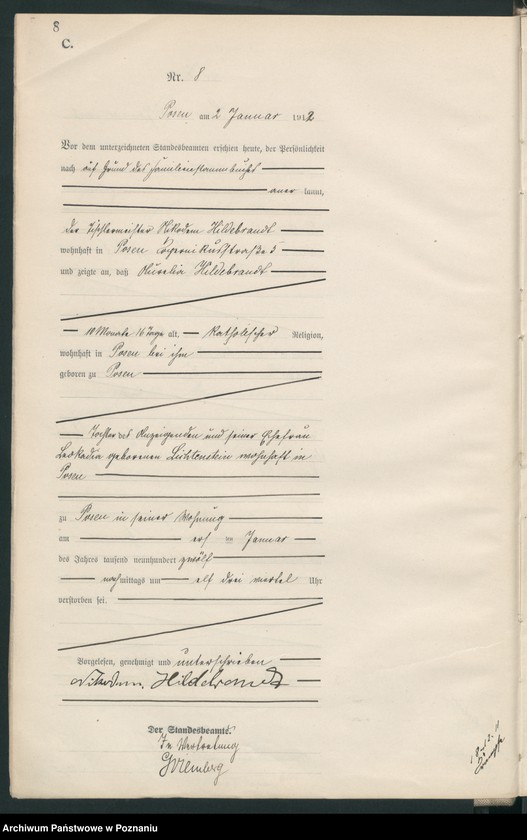 8
C.
Nr. 8
Posen, am 2 Januar 1912
Vor dem unterzeichneten Standesbeamten erschien heute, der Persönlichkeit
nach auf Grund des Familienstammbuchs
aner kannt,
der Tischlermeister Nikodem Hildebrandt
wohnhaft in Posen 5
und zeigte an, daß Aurelia Hildebrandt
10 Monate 16 Tage alt, katholischer Religion,
wohnhaft in Posen bei ihm
geboren zu Posen
Tochter des Anzeigenden und seiner Ehefrau
Leokadia geborenen Lichtenstein wohnhaft in
Posen
zu Posen in seiner Wohnung
am ersten Januar
des Jahres tausend neunhundert zwölf
nachmittags um elf drei viertel Uhr
verstorben sei.
Vorgelesen, genehmigt und unterschrieben
Nikodem Hildebrandt
Der Standesbeamte.
In Vertretung
Archiwum Państwowe w Poznaniu